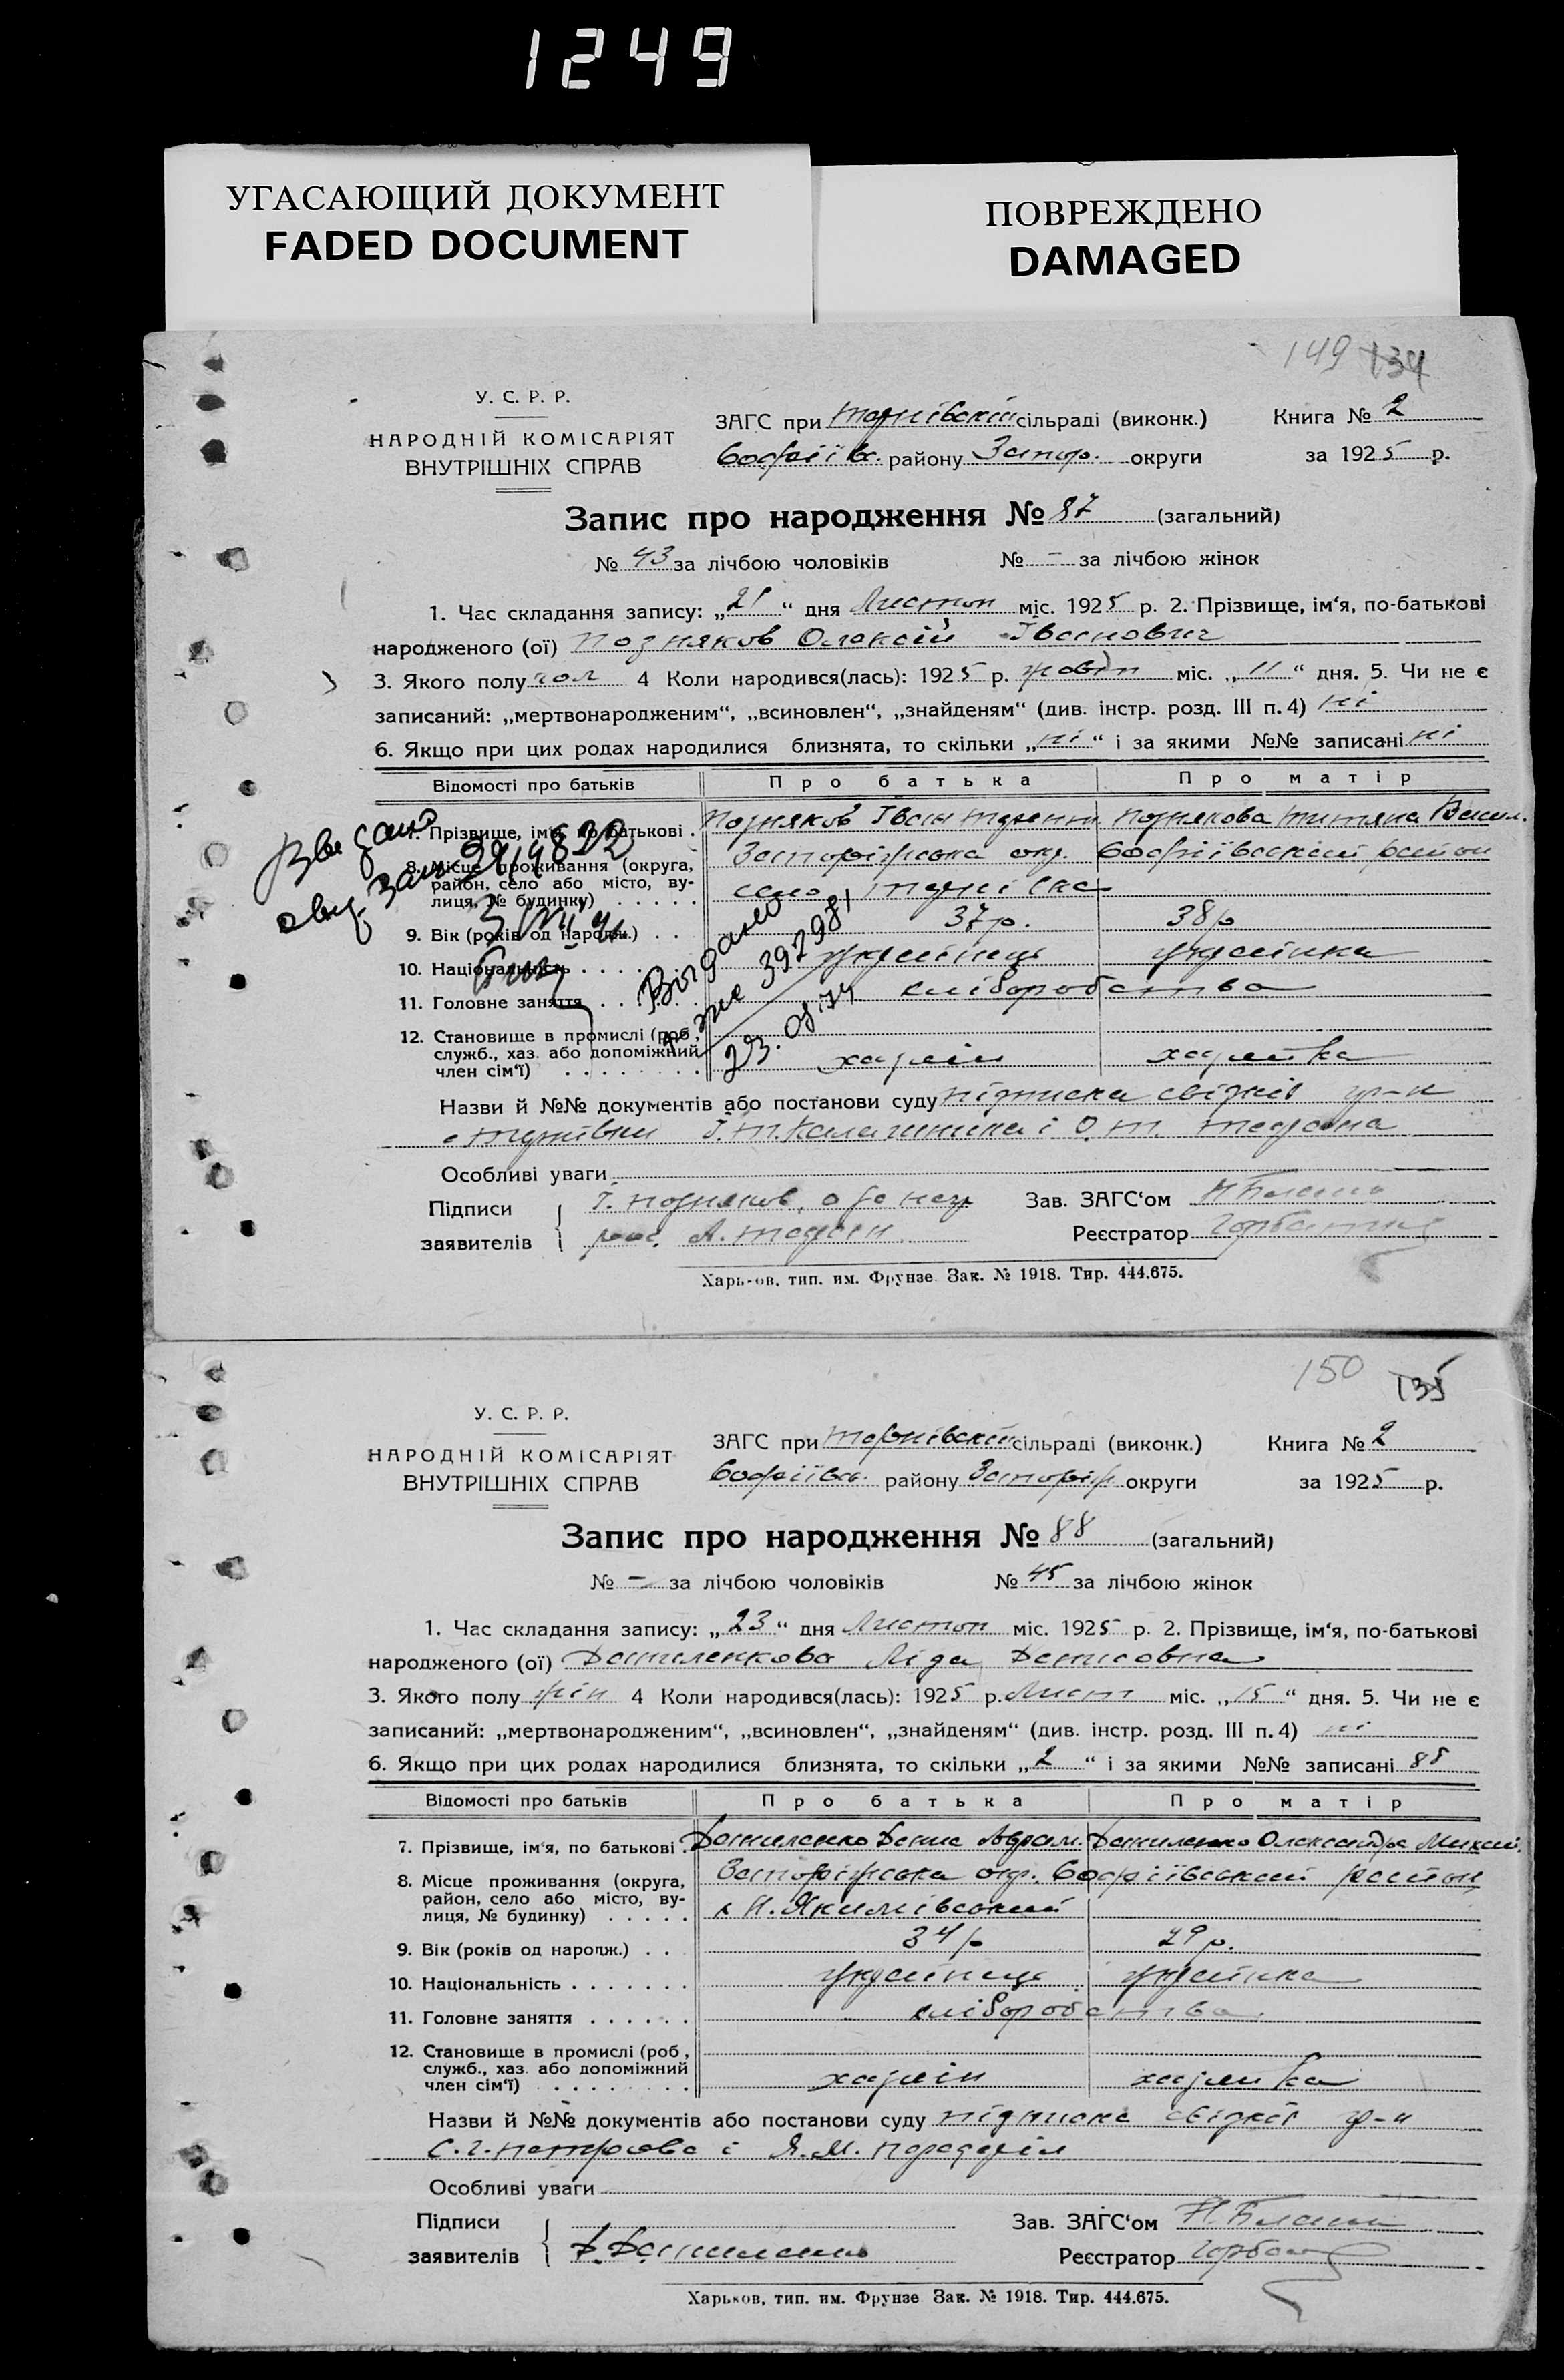 1249
УГАСАЮЩИЙ ДОКУМЕНТ
FADED DOCUMENT
ПОВРЕЖДЕНО
DAMAGED
149 134
У. С. Р. Р.
НАРОДНІЙ КОМІСАРІЯТ
ВНУТРІШНІХ СПРАВ
ЗАГС при Тернівській сільраді (виконк.) Книга № 2
Софіївс. району Запор. округи за 1925 р.
Запис про народження № 87 (загальний)
№ 43 за лічбою чоловіків № - за лічбою жінок
1. Час складання запису: „21“ дня Листоп міс. 1925 р. 2. Прізвище, ім‘я, по-батькові
народженого (ої) Позняков Олексій Іванович
3. Якого полу чол 4 Коли народився(лась): 1925 р. жовтн міс. „11“ дня. 5. Чи не є
записаний: „мертвонародженим“, „всиновлен“, „знайденям“ (див. інстр. розд. III п. 4) ні
6. Якщо при цих родах народилися близнята, то скільки „ні“ і за якими №№ записані ні
Відомості про батьків Про батька Про матір
7. Прізвище, ім‘я, по батькові . Позняков Іван Позднякова Титяна Васил.
8. Місце проживання (округа, район, село або місто, вулиця, № будинку) Запоріжська окр. Софіївський район
село Тернівка
9. Вік (років од народж.) . . 37 р. 38 р
10. Національність . . . . . . . українець українка
11. Головне заняття . . . . . . хліборобство
12. Становище в промислі (роб., служб., хаз. або допоміжний член сім‘ї) . . . . . . . . хазяїн хазяйка
Видано
397981
23.08.74
Назви й №№ документів або постанови суду підписка свідків гр-н
с Тернівки І. Т. Калашника і О. Т.
Особливі уваги
Підписи заявителів І. Позняков, а за нез
рос. А.
Зав. ЗАГС‘ом
Реєстратор
Харьков, тип. им. Фрунзе. Зак. № 1918. Тир. 444.675.
150 135
У. С. Р. Р.
НАРОДНІЙ КОМІСАРІЯТ
ВНУТРІШНІХ СПРАВ
ЗАГС при Тернівській сільраді (виконк.) Книга № 2
Софіївсь. району Запоріж округи за 1925 р.
Запис про народження № 88 (загальний)
№ - за лічбою чоловіків № 45 за лічбою жінок
1. Час складання запису: „23“ дня Листоп міс. 1925 р. 2. Прізвище, ім‘я, по-батькові
народженого (ої) Даниленкова Ліда Денисовна
3. Якого полу жін 4 Коли народився(лась): 1925 р. Лист міс. „15“ дня. 5. Чи не є
записаний: „мертвонародженим“, „всиновлен“, „знайденям“ (див. інстр. розд. III п. 4) ні
6. Якщо при цих родах народилися близнята, то скільки „2“ і за якими №№ записані 88
Відомості про батьків Про батька Про матір
7. Прізвище, ім‘я, по батькові . Даниленко Денис Аврам. Даниленко Олександра Михай.
8. Місце проживання (округа, район, село або місто, вулиця, № будинку) . . . . . Запоріжська окр. Софіївський район
х Н. Якимівський
9. Вік (років од народж.) . . 34 р 29 р.
10. Національність . . . . . . . українець українка
11. Головне заняття . . . . . . хліборобство
12. Становище в промислі (роб., служб., хаз. або допоміжний член сім‘ї) . . . . . . . . хазяїн хазяйка
Назви й №№ документів або постанови суду підписка свідків гр-н
С. Г. Петрова і Я. М.
Особливі уваги
Підписи заявителів Д. Даниленко
Зав. ЗАГС‘ом
Реєстратор
Харьков, тип. им. Фрунзе Зак. № 1918. Тир. 444.675.